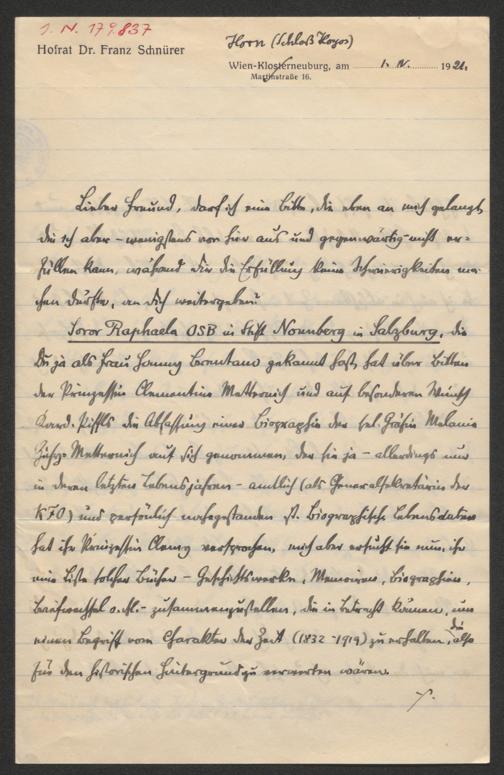 I. N. 179.837
Hofrat Dr. Franz Schnürer
Horn (Schloß Hoyos)
Wien-Klosterneuburg, am 1. IV. 1921.
Martinstraße 16.
Lieber Freund, darf ich eine Bitte, die eben an mich gelangt,
die ich aber – wenigstens von hier aus und gegenwärtig – nicht er-
füllen kann, während Dir die Erfüllung keine Schwierigkeiten ma-
chen dürfte, an Dich weitergeben?
Soror Raphaela OSB in Stift Nonnberg in Salzburg, die
Du ja als Frau Hanny Brentano gekannt hast, hat über Bitten
der Prinzessin Clementine Metternich und auf besonderen Wunsch
Kard. Piffls die Abfassung einer Biographie der sel. Gräfin Melanie
Zichy-Metternich auf sich genommen, der sie ja – allerdings nur
in deren letzten Lebensjahren – amtlich (als Generalsekretärin der
KFO) und persönlich nahegestanden ist. Biographische Lebensdaten
hat ihr Prinzessin Clemy versprochen, mich aber ersucht sie nun, ihr
eine Liste solcher Bücher – Geschichtswerke, Memoiren, Biographien,
Briefwechsel o. Ä. – zusammenzustellen, die in Betracht kämen, um
einen Begriff vom Charakter der Zeit (1832–1919) zu erhalten, die also
für den historischen Hintergrund zu verwerten wären.